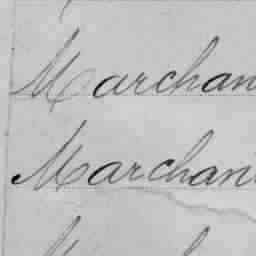 Marchan
Marchan